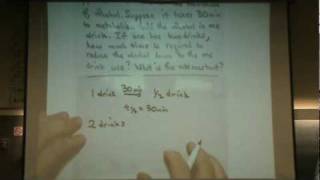 of alcohol. Suppose it takes 30 min
to metabolize the alcohol in one
drink. If one has two drinks,
how much time is required to
reduce the alcohol down to the one
drink use? What is the rate constant?
1 drink 30 min 1/2 drink
t 1/2 = 30 min
2 drinks